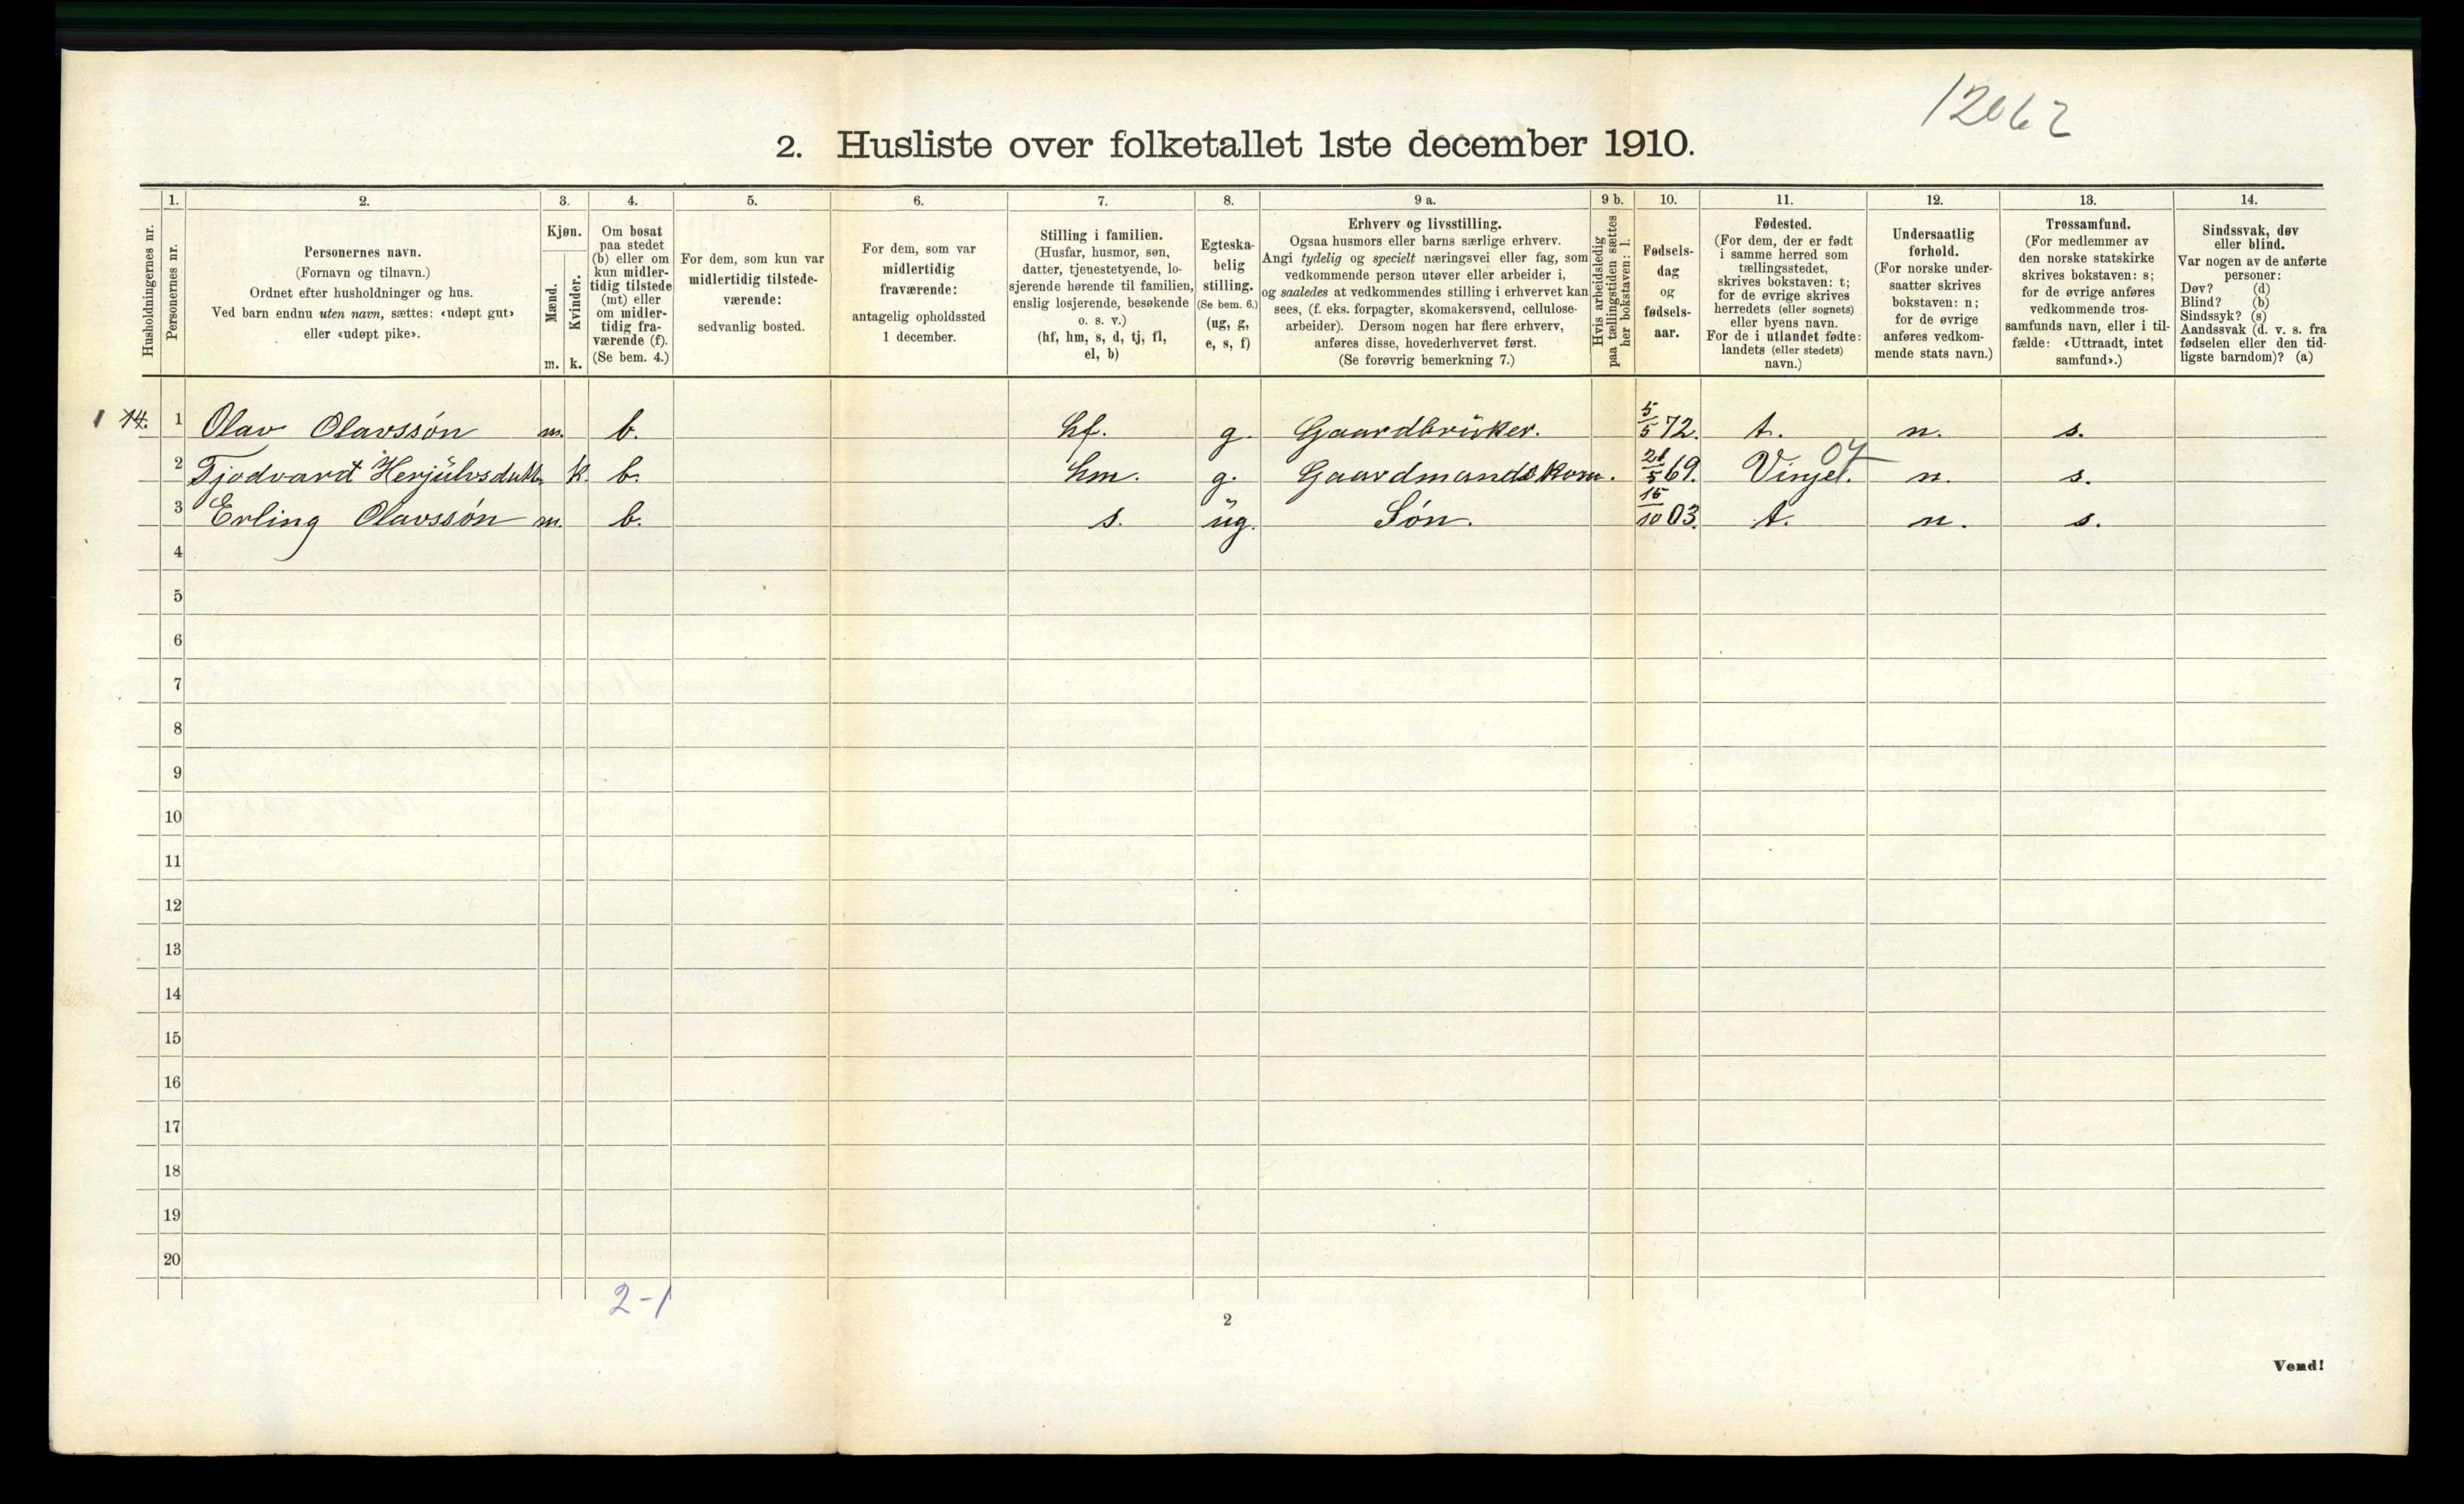 12062
2. Husliste over folketallet 1ste december 1910.
Husholdningernes nr.
1.
Personernes nr.
2.
Personernes navn.
(Fornavn og tilnavn.)
Ordnet efter husholdninger og hus.
Ved barn endnu uten navn, sættes: «udøpt gut»
eller «udøpt pike».
3.
Kjøn.
Mænd.
Kvinder.
m. k.
4.
Om bosat
paa stedet
(b) eller om
kun midler-
tidig tilstede
(mt) eller
om midler-
tidig fra-
værende (f).
(Se bem. 4.)
5.
For dem, som kun var
midlertidig tilstede-
værende:
sedvanlig bosted.
6.
For dem, som var
midlertidig
fraværende:
antagelig opholdssted
1 december.
7.
Stilling i familien.
(Husfar, husmor, søn,
datter, tjenestetyende, lo-
sjerende hørende til familien,
enslig losjerende, besøkende
o. s. v.)
(hf, hm, s, d, tj, fl,
el, b)
8.
Egteska-
belig
stilling.
(Se bem. 6.)
(ug, g,
e, s, f)
9 a.
Erhverv og livsstilling.
Ogsaa husmors eller barns særlige erhverv.
Angi tydelig og specielt næringsvei eller fag, som
vedkommende person utøver eller arbeider i,
og saaledes at vedkommendes stilling i erhvervet kan
sees, (f. eks. forpagter, skomakersvend, cellulose-
arbeider). Dersom nogen har flere erhverv,
anføres disse, hovederhvervet først.
(Se forøvrig bemerkning 7.)
9 b.
Hvis arbeidsledig
paa tællingstiden sættes
her bokstaven: l.
10.
Fødsels-
dag
og
fødsels-
aar.
11.
Fødested.
(For dem, der er født
i samme herred som
tællingsstedet,
skrives bokstaven: t;
for de øvrige skrives
herredets (eller sognets)
eller byens navn.
For de i utlandet fødte:
landets (eller stedets)
navn.)
12.
Undersaatlig
forhold.
(For norske under-
saatter skrives
bokstaven: n;
for de øvrige
anføres vedkom-
mende stats navn.)
13.
Trossamfund.
(For medlemmer av
den norske statskirke
skrives bokstaven: s;
for de øvrige anføres
vedkommende tros-
samfunds navn, eller i til-
fælde: «Uttraadt, intet
samfund».)
14.
Sindssvak, døv
eller blind.
Var nogen av de anførte
personer:
Døv? (d)
Blind? (b)
Sindssyk? (s)
Aandssvak (d. v. s. fra
fødselen eller den tid-
ligste barndom)? (a)
1 14. 1 Olav Olavssón m. b. hf. g. Gaardbrüker. 5/5 72. t. n. s.
2 Herjülvsdatt. k. b. hm. g. Gaardmandskom. 21/5 69. Vinjel. 07 n. s.
3 Erling Olavssón m. b. s. üg. Són. 15/10 03. t. n. s.
4
5
6
7
8
9
10
11
12
13
14
15
16
17
18
19
20
2-1
2
Vend!